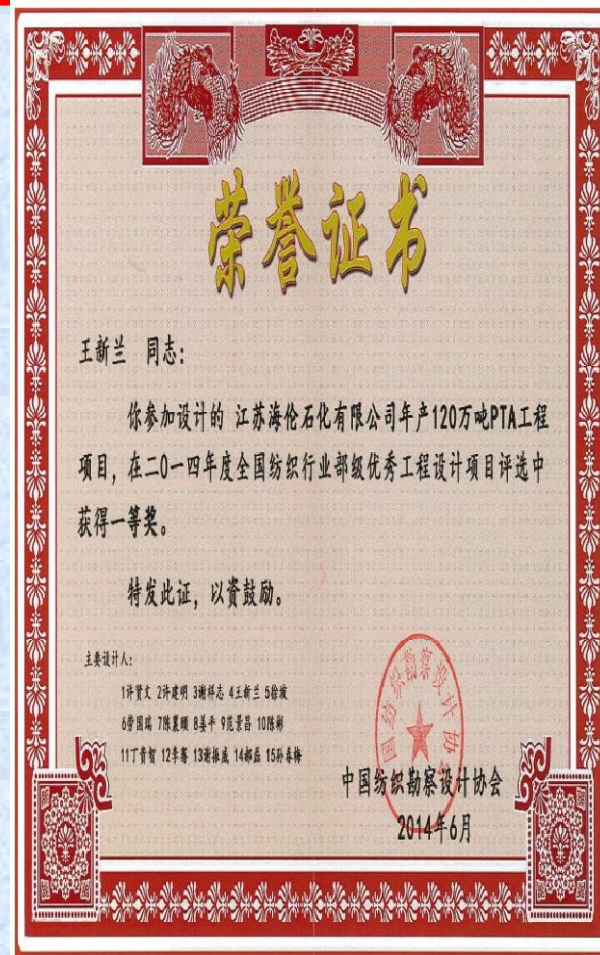 荣誉证书
王新兰 同志：
你参加设计的 江苏海伦石化有限公司年产120万吨PTA工程
项目，在二0一四年度全国纺织行业部级优秀工程设计项目评选中
获得一等奖。
特发此证，以资鼓励。
主要设计人：
1许贤文 2许建明 3谢祥志 4王新兰 5徐
6曾国瑞 7陈 8姜平 9范景昌 10陈彬
11丁青智 12李骞 13谢振威 14郝磊 15孙春梅
中国纺织勘察设计协会
中国纺织勘察设计协会
2014年6月